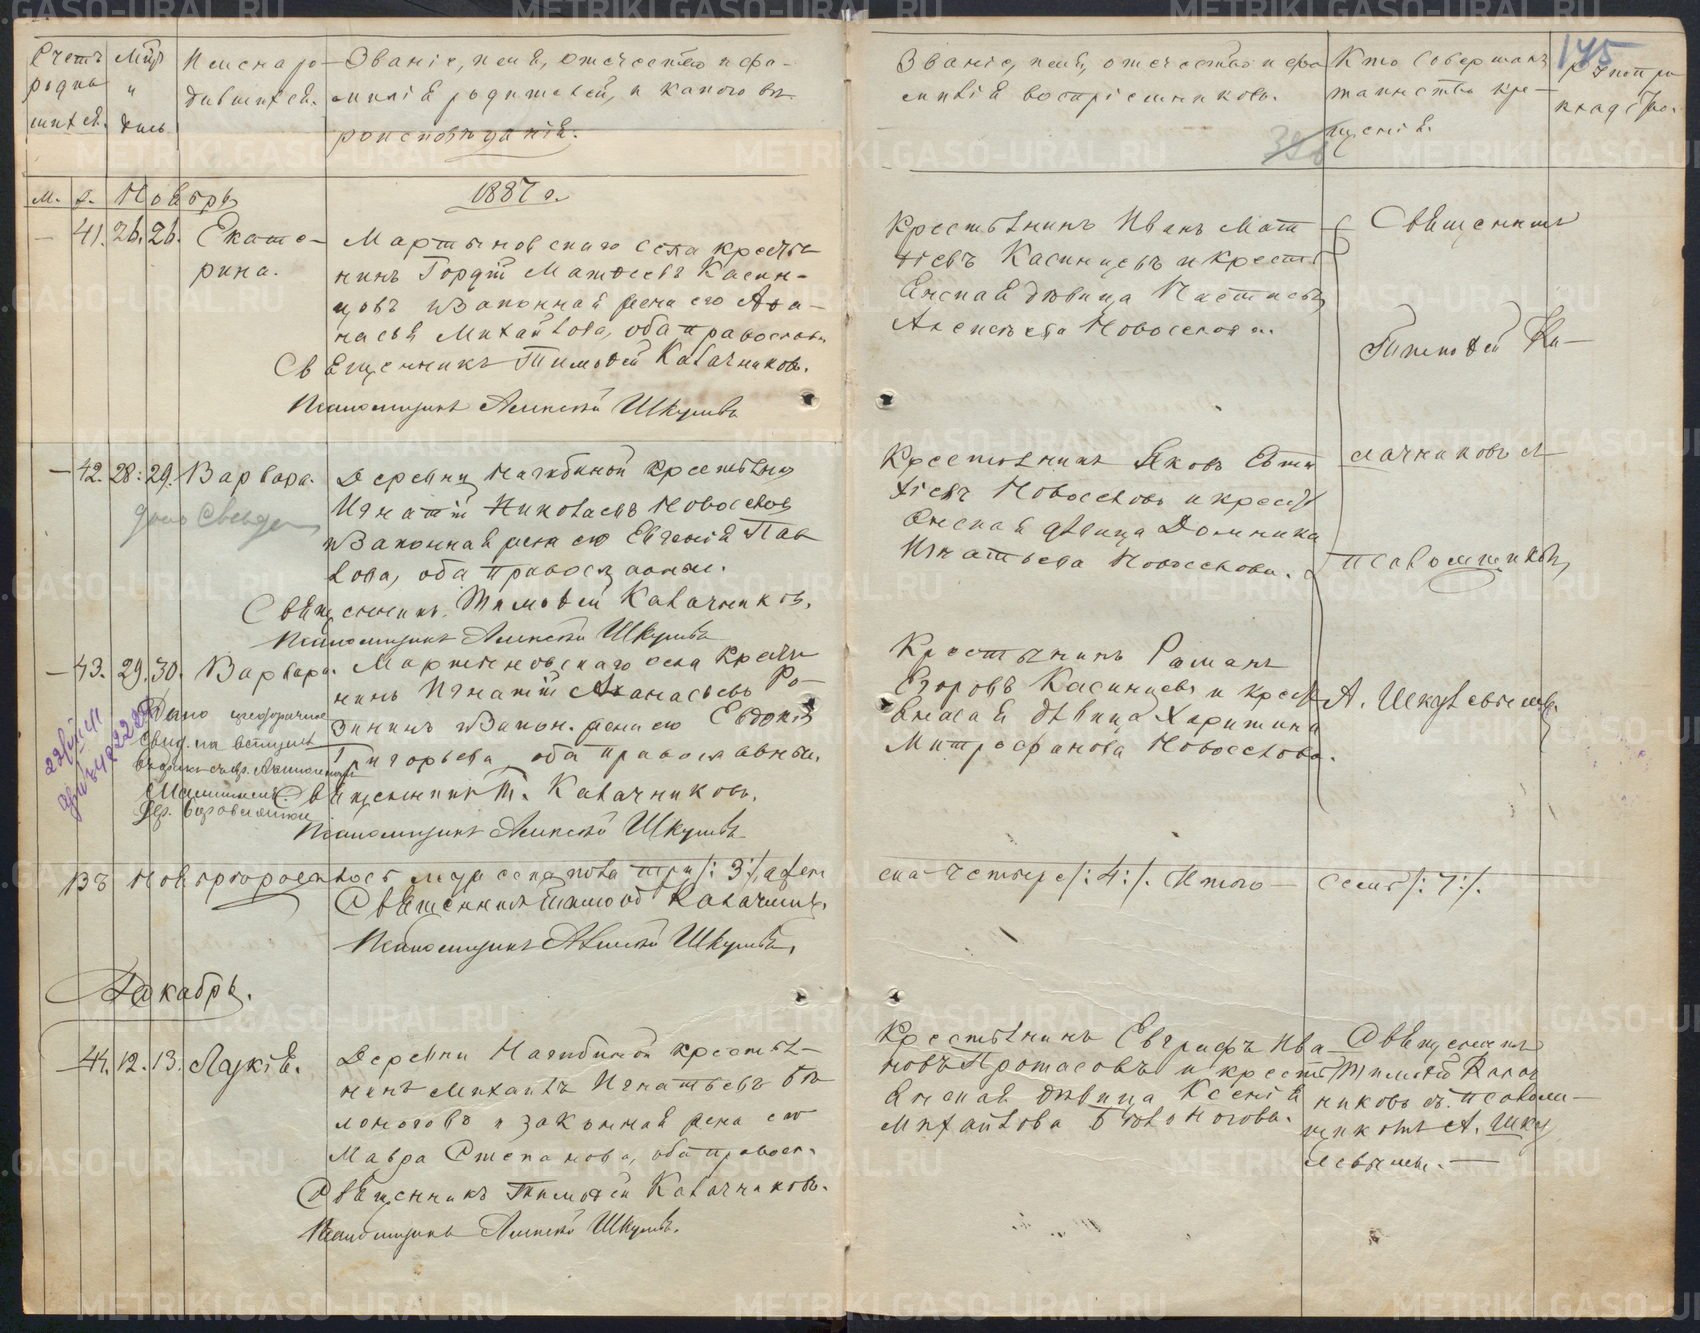 Счетъ родившихся.
Мѣс. и день
Имена родившихся.
Званіе, имя, отчество и фамилія родителей, и какого вѣроисповѣданія.
Званіе, имя, отчество и фамилія воспріемниковъ.
Кто совершалъ таинство крещенія.
145
М. ж. Ноябрь
1887 г.
— 41. 26. 26. Екате-
рина.
Мартыновскаго села крестья-
нинъ Гордій Матѳеевъ Касин-
цовъ и законная жена его Аѳа-
насья Михайлова, оба православн.
Священникъ Тимоѳей Калачниковъ.
Псаломщикъ Алексѣй Шкулевъ
Крестьянинъ Иванъ Мат-
ѳіевъ Касинцевъ и кресть-
янская дѣвица Настасья
Алексѣева Новоселова.
Священникъ
Тимоѳей Ка-
— 42. 28. 29. Варвара.
Деревни Нагибиной крестьянинъ
Игнатій Николаевъ Новоселовъ
и законная жена его Евгенія Пав-
лова, оба православные.
Священникъ Тимоѳей Калачниковъ.
Псаломщикъ Алексѣй Шкулевъ
Крестьянинъ Яковъ Евти-
хіевъ Новоселовъ и кресть-
янская дѣвица Домника
Игнатьева Новоселова.
лачниковъ съ
псаломщикомъ
— 43. 29. 30. Варвара.
Мартыновскаго села крестья-
нинъ Игнатій Аѳанасьевъ Ро-
зининъ и закон. жена его Евдокія
Григорьева, оба православные.
Священникъ Т. Калачниковъ.
Псаломщикъ Алексѣй Шкулевъ
Дано
Крестьянинъ Романъ
Егоровъ Касинцевъ и кресть-
янская дѣвица Харитина
Митрофанова Новоселова.
А. Шкулевымъ.
Въ Ноябрѣ родилось муж. села пола три /: 3 :/, жен-
ска четыре /: 4 :/. Итого — семь /: 7 :/.
Священникъ Тимоѳей Калачник.
Псаломщикъ Алексѣй Шкулевъ.
Декабрь.
— 44. 12. 13. Лукія.
Деревни Нагибиной крестья-
нинъ Михаилъ Игнатьевъ Бѣ-
лоноговъ и законная жена его
Мавра Степанова, оба правосл.
Священникъ Тимоѳей Калачниковъ.
Псаломщикъ Алексѣй Шкулевъ.
Крестьянинъ Евграфъ Ива-
новъ Протасовъ и кресть-
янская дѣвица Ксенія
Михайлова Бѣлоногова.
Священникъ
Тимоѳей Калач-
никовъ съ псалом-
щикомъ А. Шку-
левымъ. —
METRIKI.GASO-URAL.RU